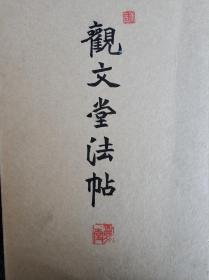 觀文堂法帖